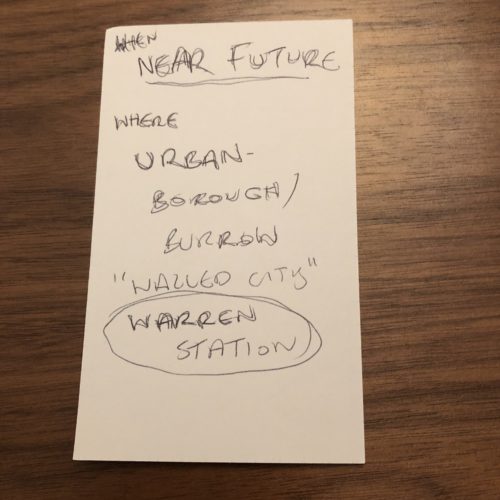 WHEN
NEAR FUTURE
WHERE
URBAN-
BOROUGH/
BURROW
"WALLED CITY"
WARREN
STATION